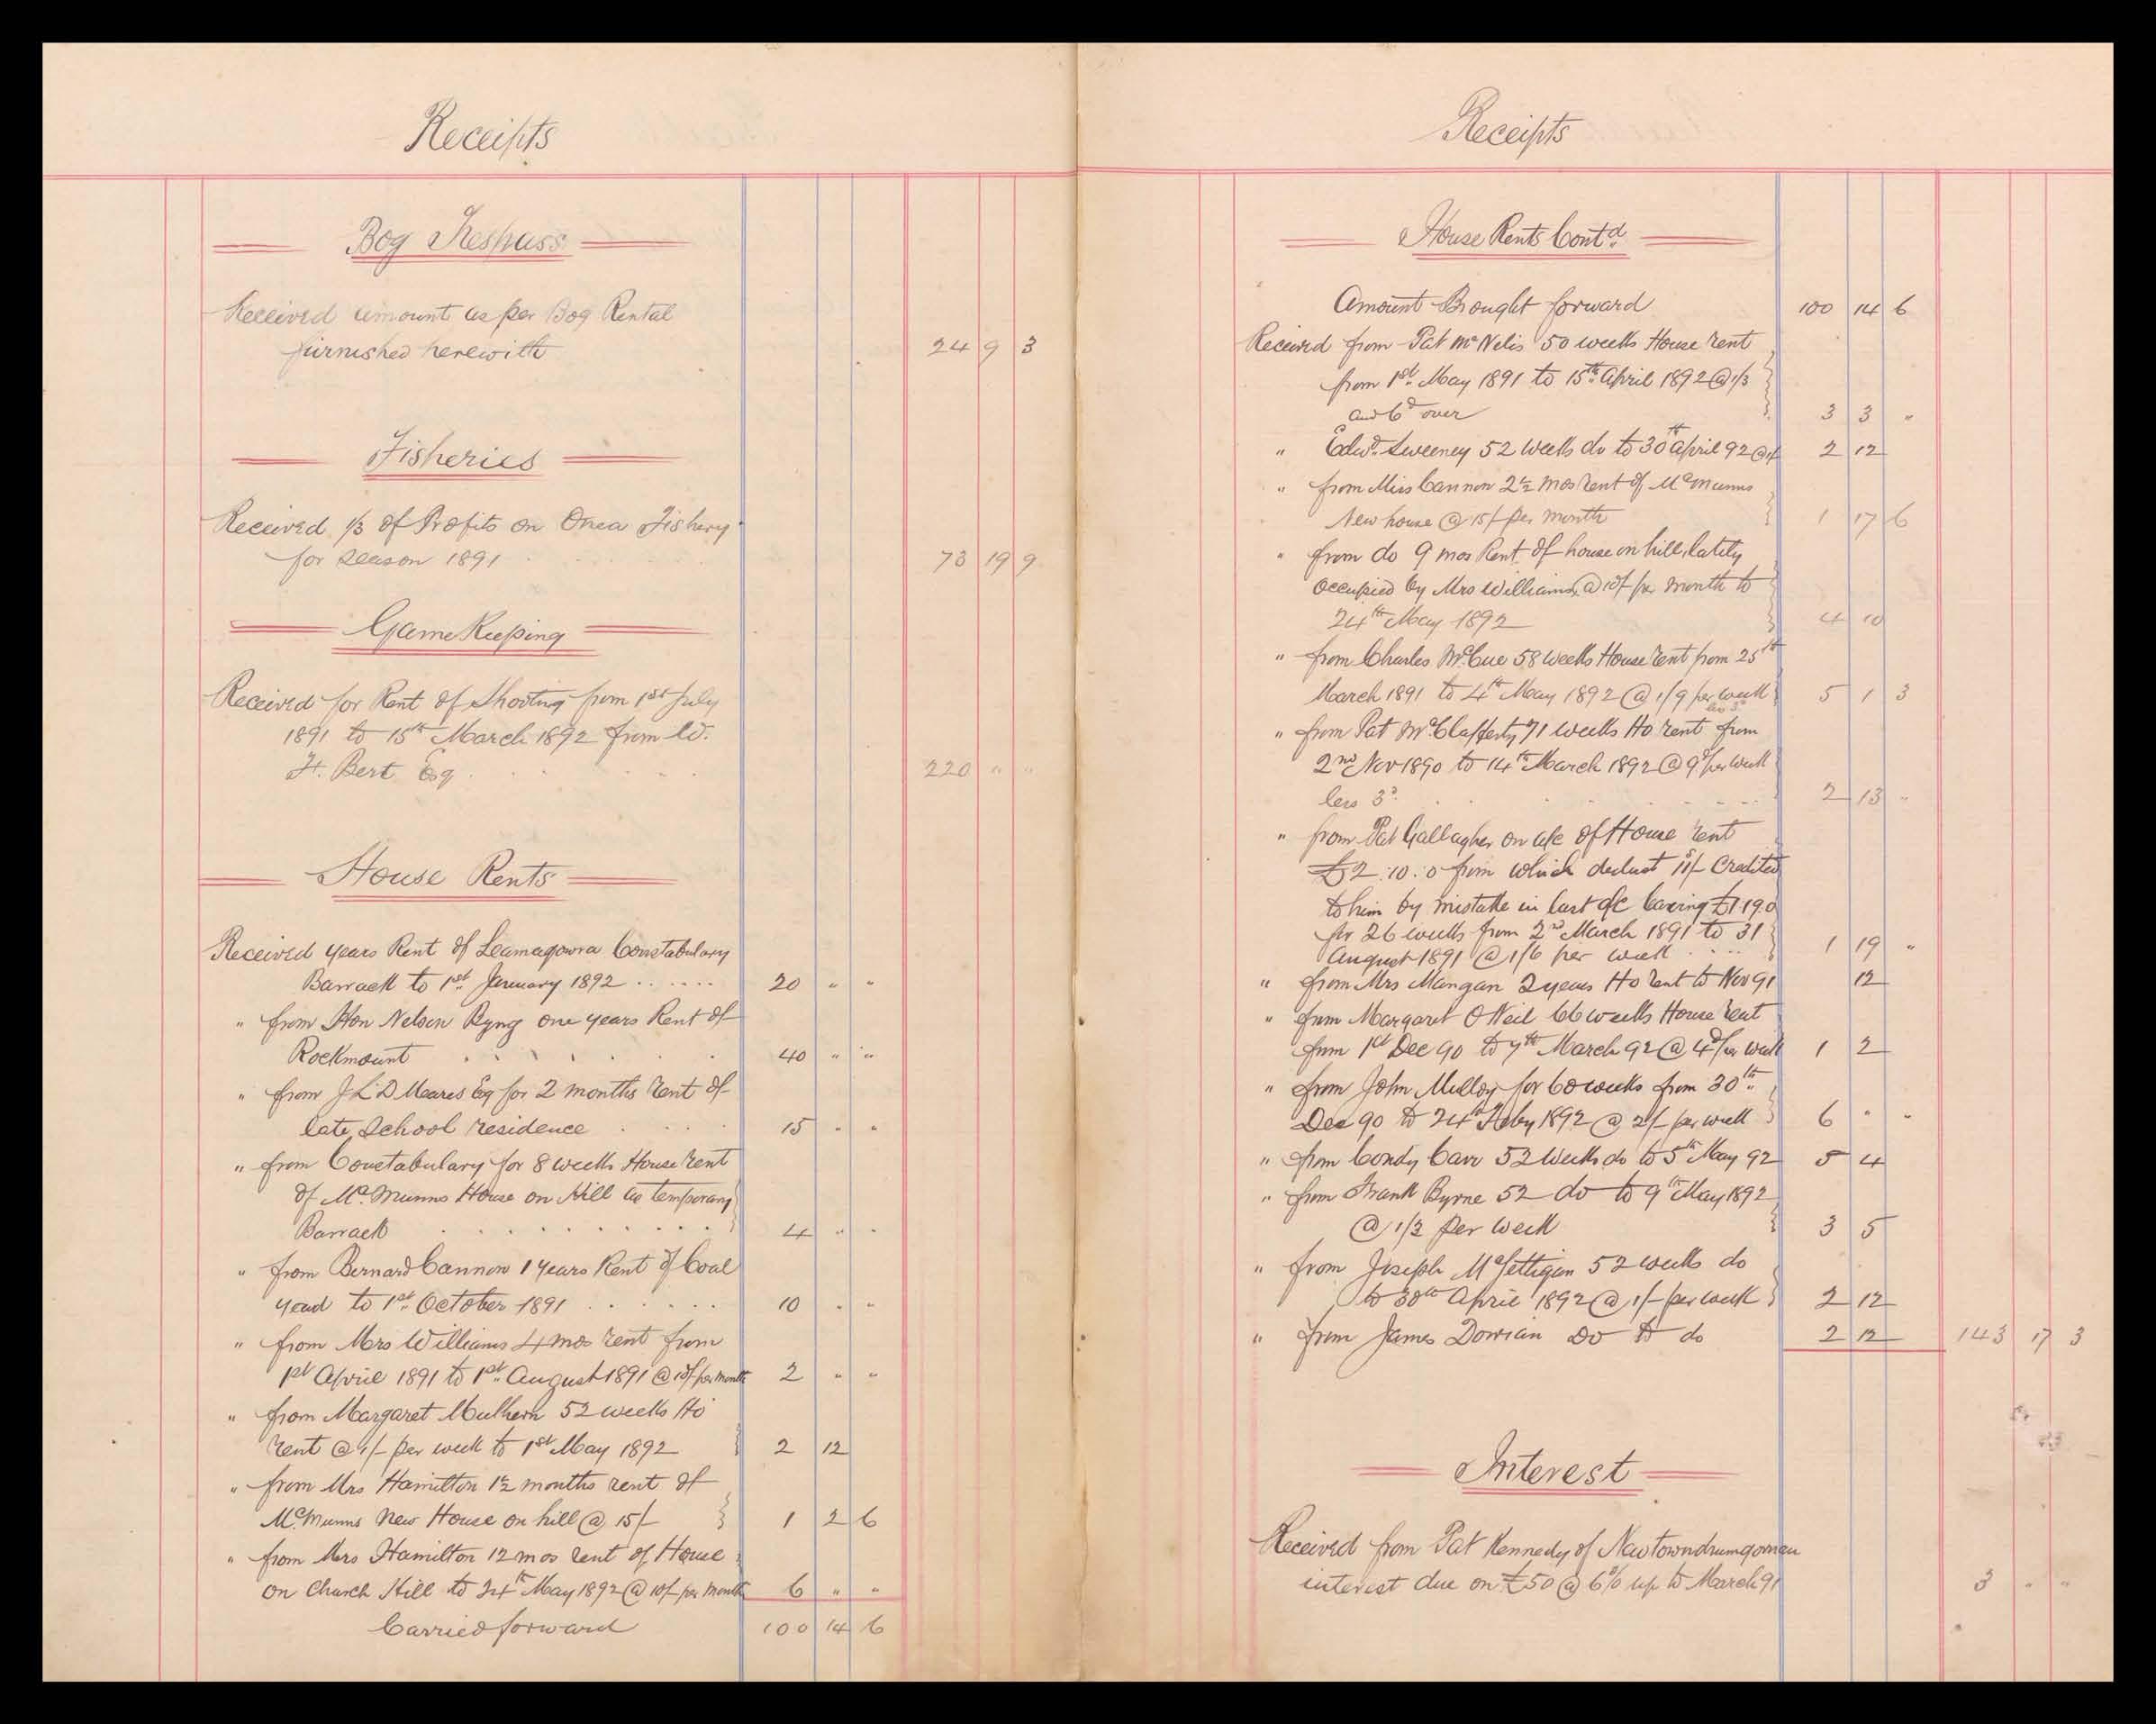 Receipts
Bog Trespass
Received amount as per Bog Rental
furnished herewith 24 9 3
Fisheries
Received 1/3 of Profits on Owea Fishery
for season 1891 73 19 9
Game Keeping
Received for Rent of Shooting from 1st July
1891 to 15th March 1892 from
F. Bert Esq 220 " "
House Rents
Received years Rent of Constabulary
Barrack to 1st January 1892 . . . . . . 20 " "
" from Hon Nelson Byng one years Rent of
Rockmount . . . . . . 40 " "
" from J L D Meares Esq for 2 months rent of
late School residence . . . . 15 " "
" from Constabulary for 8 weeks House rent
of McMunns House on Hill as temporary
Barrack . . . . . . . . . . 4 " "
" from Bernard Cannon 1 Years Rent of Coal
yead to 1st October 1891 . . . . . . 10 " "
" from Mrs Williams 4 mos rent from
1st April 1891 to 1st August 1891 @ 10/- per month 2 " "
" from Margaret Mulhern 52 weeks Ho
rent @ 1/- per week to 1st May 1892 2 12
" from Mrs Hamilton 1½ months rent of
McMunns New House on hill @ 15/- 1 2 6
" from Mrs Hamilton 12 mos rent of House
on Church Hill to 24th May 1892 @ 10/- per month 6 " "
Carried forward 100 14 6
Receipts
House Rents Contd
Amount Brought forward 100 14 6
Received from Pat McNelis 50 weeks House rent
from 1st May 1891 to 15th April 1892 @ 1/3
and 6d over 3 3 "
" Edwd Sweeney 52 weeks do to 30th April 92 @ 1/- 2 12
" from Miss Cannon 2½ mos rent of McMunns
New house @ 15/- per month 1 17 6
" from do 9 mos Rent of house on hill, lately
occupied by Mrs Williams, @ 10/- per month to
24th May 1892 4 10
" from Charles McCue 58 weeks House rent from 25th
March 1891 to 4th May 1892 @ 1/9 per week less 3d 5 1 3
" from Pat McClafferty 71 weeks Ho rent from
2nd Nov 1890 to 14th March 1892 @ 9d per week
less 3d . . . . . . . 2 13 "
" from Pat Gallagher on a/c of House rent
£2 : 10 : 0 from which deduct 11/- Credited
to him by mistake in last a/c leaving £1 19 0
for 26 weeks from 2nd March 1891 to 31
August 1891 @ 1/6 per week . . . . 1 19 "
" from Mrs Mangan 2 years Ho rent to Nov 91 12
" from Margaret O Neil 66 weeks House rent
from 1st Dec 90 to 7th March 92 @ 4d per week 1 2
" from John Mulloy for 60 weeks from 30th
Dec 90 to 24th Feby 1892 @ 2/- per week 6 " "
" from Condy Carr 52 Weeks do to 5th May 92 5 4
" from Frank Byrne 52 do to 9th May 1892
@ 1/3 per week 3 5
" from Joseph McFettigan 52 weeks do
to 30th April 1892 @ 1/- per week 2 12
" from James Dorrian Do to do 2 12 143 17 3
Interest
Received from Pat Kennedy of Newtowndrumgorman
interest due on £50 @ 6% up to March 91 3 " "